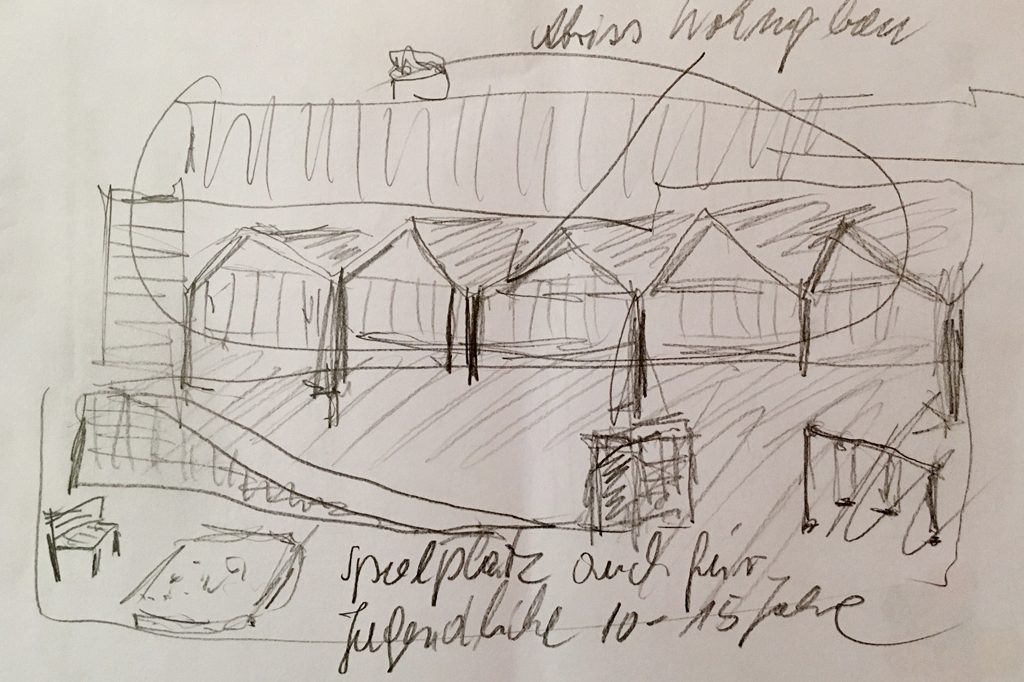 Abriss Wohngbau
Spielplatz auch für
Jugendliche 10-15 Jahre